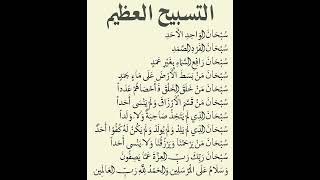 التسبيح العظيم
سُبْحَانَ الوَاحِدِ الأَحَدِ
سُبْحَانَ الفَرْدِ الصَّمَدِ
سُبْحَانَ رَافِعِ السَّمَاءِ بِغَيْرِ عَمَدٍ
سُبْحَانَ مَنْ بَسَطَ الأَرْضَ عَلَى مَاءٍ جَمَدٍ
سُبْحَانَ مَنْ خَلَقَ الخَلْقَ وَأَحْصَاهُمْ عَدَداً
سُبْحَانَ مَنْ قَسَمَ الأَرْزَاقَ وَلَمْ يَنْسَ أَحَداً
سُبْحَانَ الَّذِي لَمْ يَتَّخِذْ صَاحِبَةً وَلَا وَلَداً
سُبْحَانَ الَّذِي لَمْ يَلِدْ وَلَمْ يُولَدْ وَلَمْ يَكُنْ لَهُ كُفُوًا أَحَدٌ
سُبْحَانَ مَنْ يَرْحَمُنَا وَيَرْزُقُنَا وَلَا يَنْسَى أَحَداً
سُبْحَانَ رَبِّكَ رَبِّ العِزَّةِ عَمَّا يَصِفُونَ
وَسَلَامٌ عَلَى المُرْسَلِينَ وَالحَمْدُ لِلَّهِ رَبِّ العَالَمِينَ